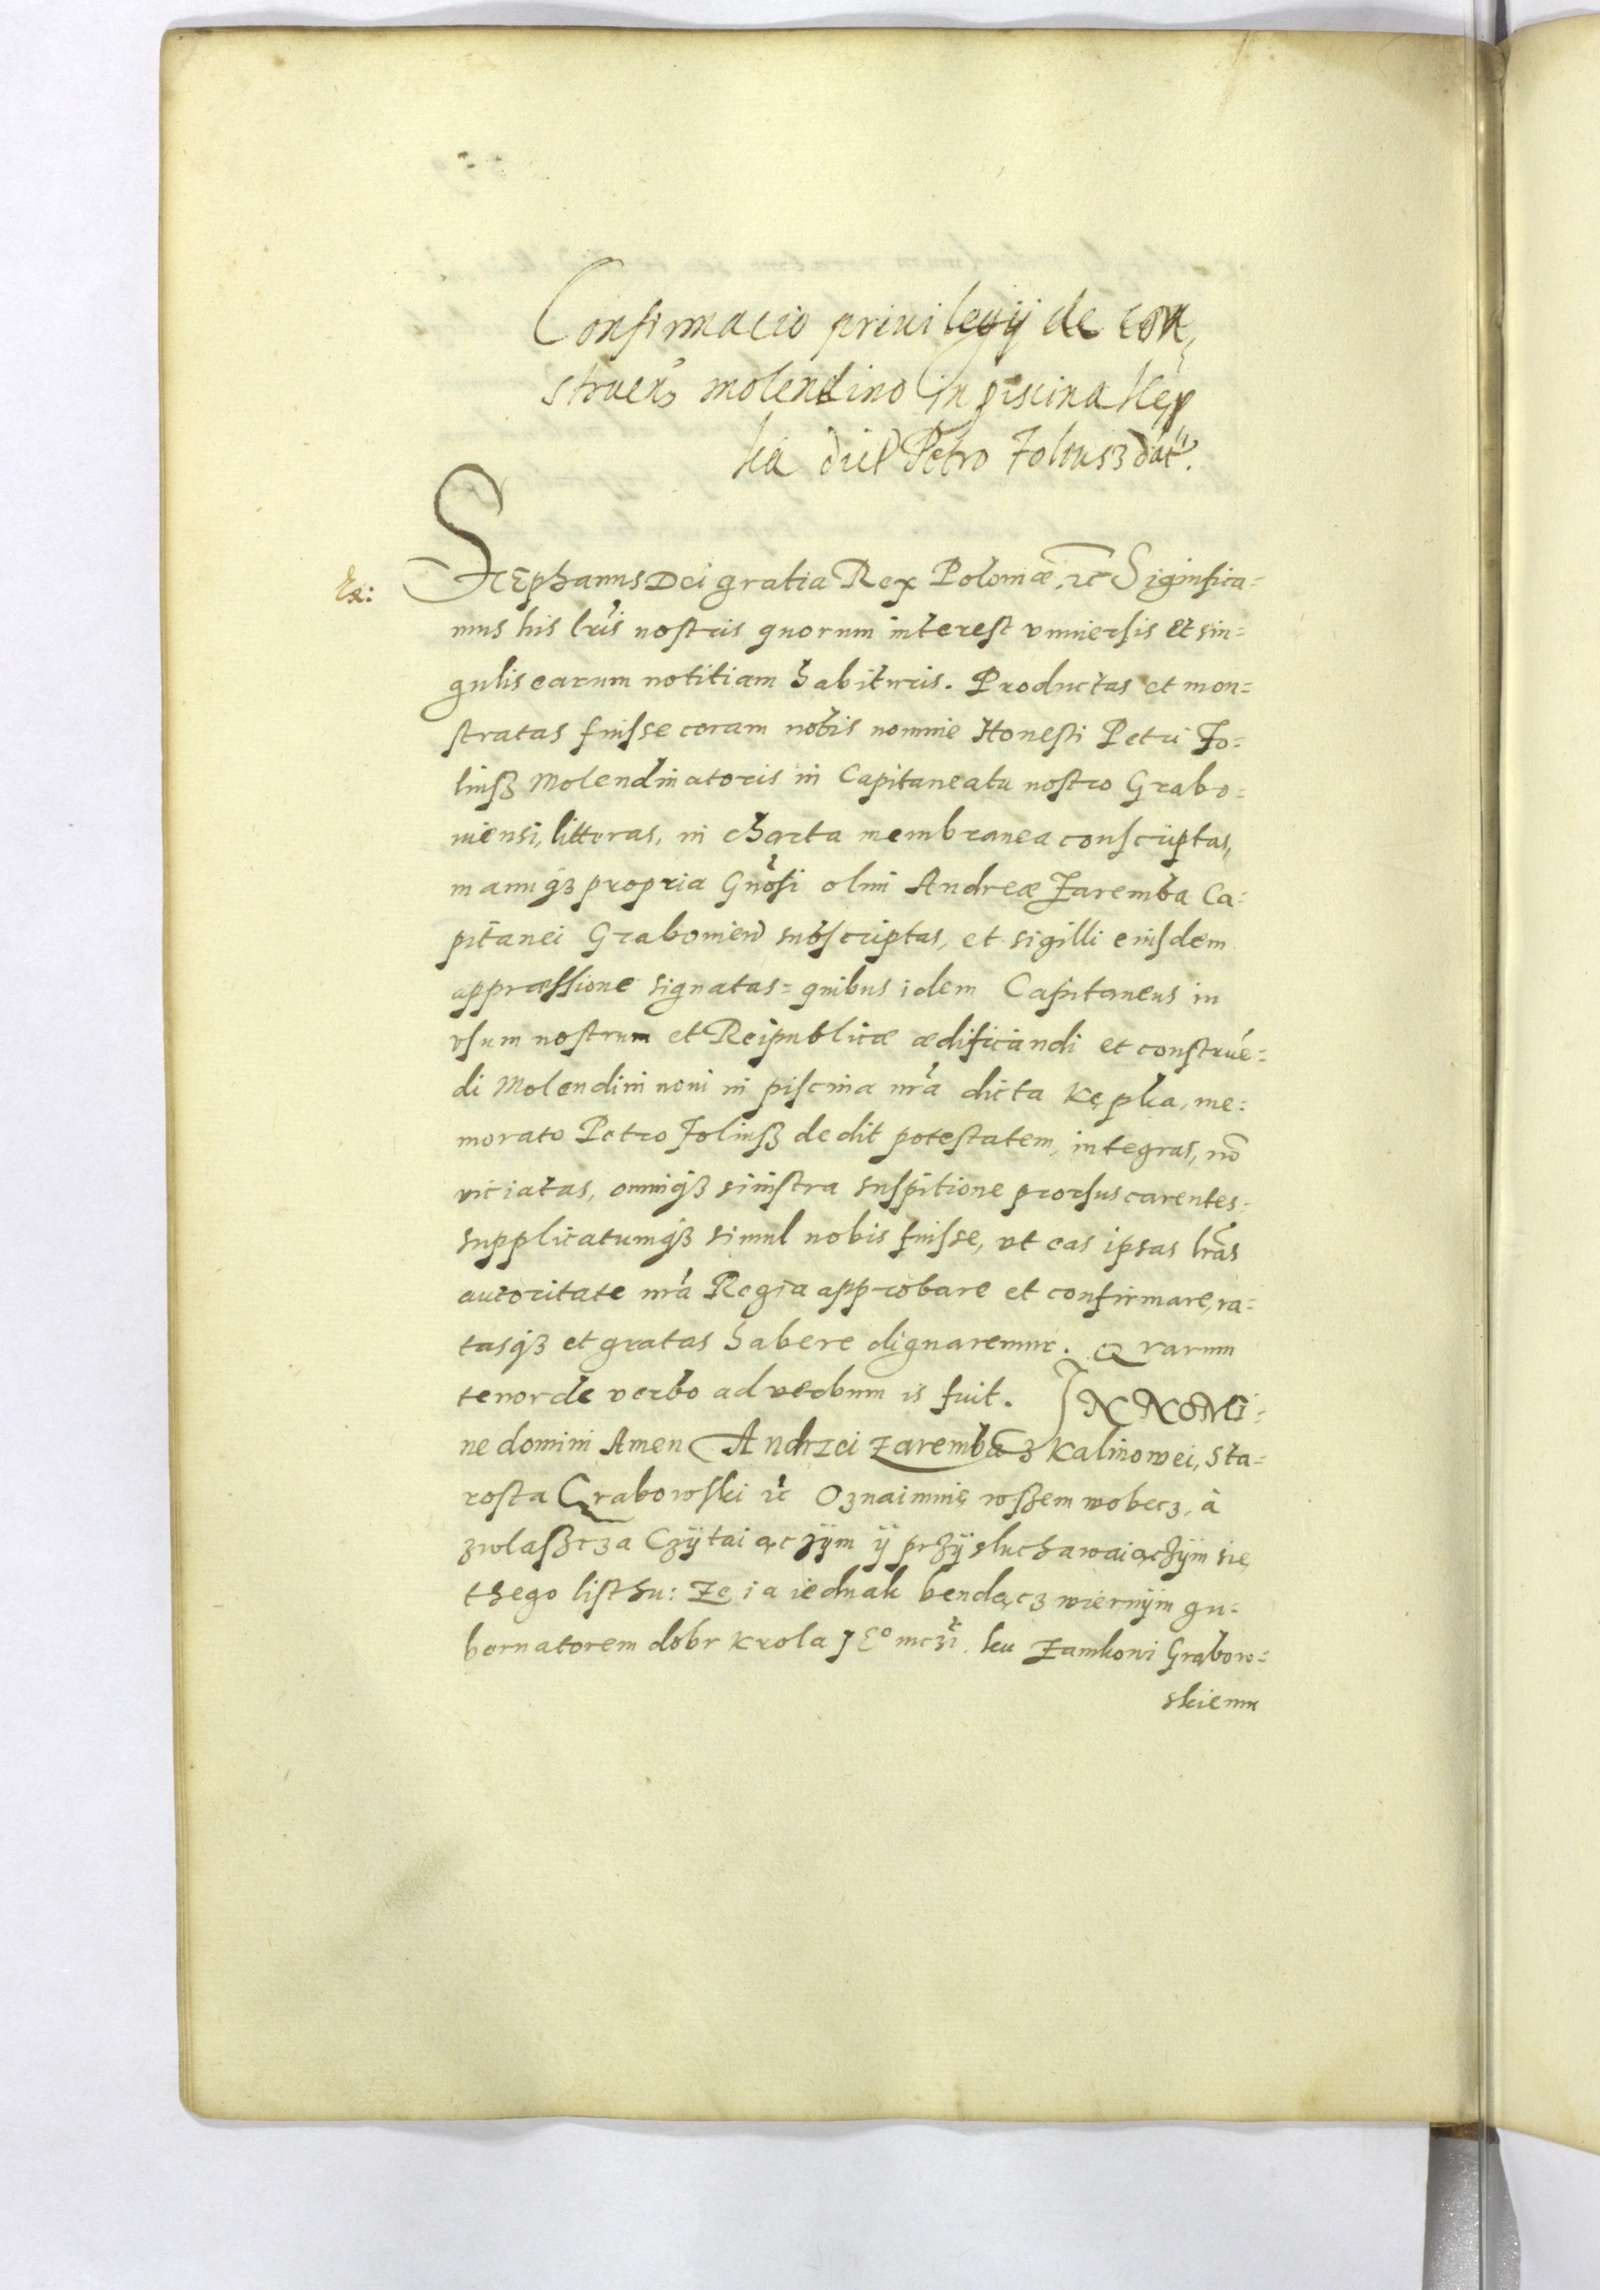 Confirmacio priuilegij de con
struen molendino in piscina Kęp
ka dict Petro Foluusz dat.
Ex:
Stephanus Dei gratia Rex Poloniæ, etc Significa=
mus his lris nostris quorum interest vniuersis et sin=
gulis earum notitiam habituris. Productas et mon=
stratas fuisse coram nobis nomine Honesti Petri Fo=
liusz Molendinatoris in Capitaneatu nostro Grabo=
uiensi, litteras, in charta membranea conscriptas,
manuq3 propria Gnosi olim Andreæ Zaremba Ca=
pitanei Grabouien subscriptas, et sigilli eiusdem
appræssione signatas= quibus idem Capitaneus in
vsum nostrum et Reipublicæ ædificandi et construe=
di Molendini noui in piscina nra dicta Kępka, me=
morato Petro Foliusz dedit potestatem, integras, no
viciatas, omniq3 sinistra suspitione prorsus carentes=
supplicatumq3 simul nobis fuisse, vt eas ipsas lras
autoritate nra Regia approbare et confirmare, ra=
tasq3 et gratas habere dignaremur. Quarum
tenor de verbo ad verbum is fuit. IN NOMI=
ne domini Amen Andrzei Zaremba z Kalinowei, Sta=
rosta Grabowski etc Oznaimuię wszem wobecz, à
zwlaszcza Czÿtaiączÿm ÿ przÿsluchawaiączÿm się
thego listhu: Ze ia iednak bendącz wiernÿm gu=
bernatorem dobr Krola JEo mczi. ku Zamkoui Grabow=
skiemu